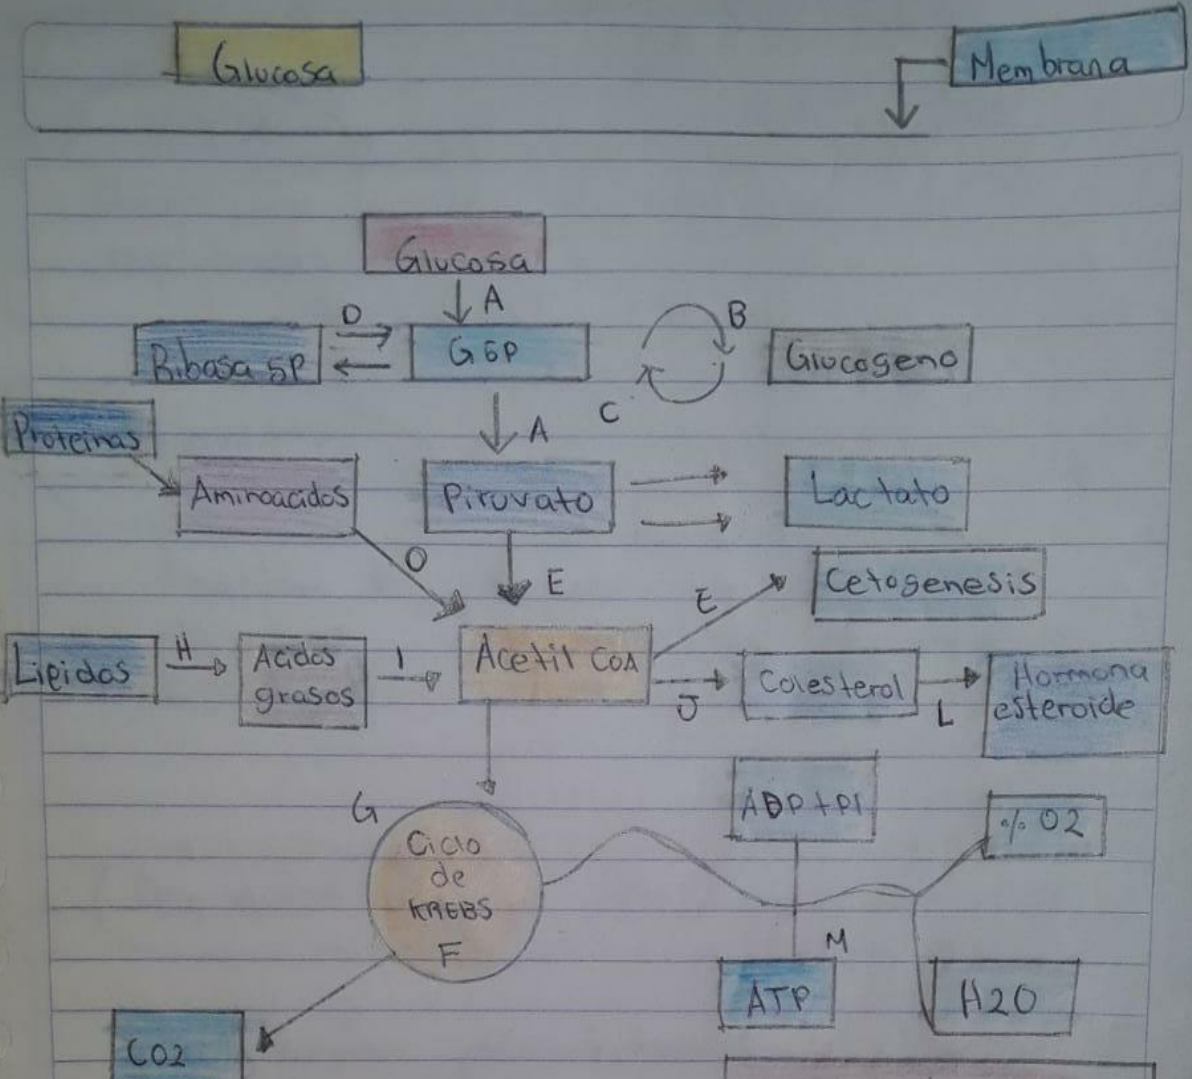 Glucosa
Membrana
Glucosa
A
D
B
Ribasa 5P
G6P
Glucogeno
C
A
Proteinas
Aminoacidos
Piruvato
Lactato
O
E
E
Cetogenesis
Lipidos
H
Acidos
grasos
I
Acetil CoA
J
Colesterol
L
Hormona
esteroide
G
ADP+PI
O2
Ciclo
de
KREBS
F
M
ATP
H2O
CO2